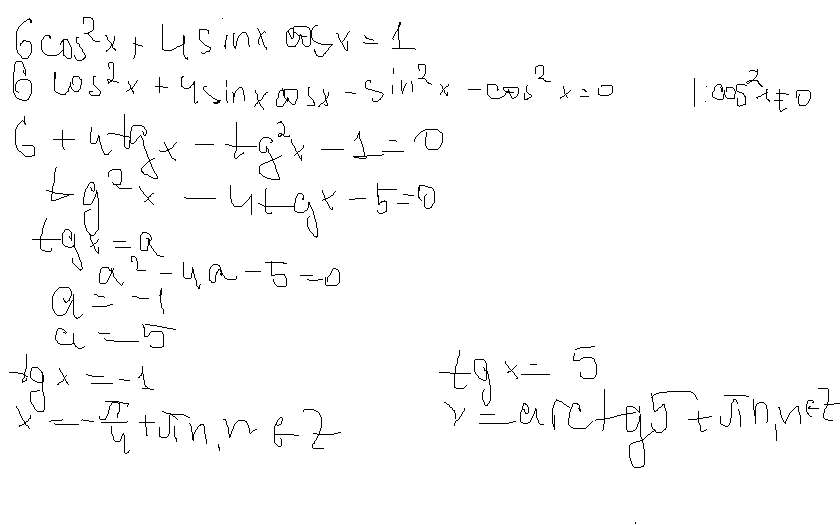 6cos²x + 4sinx cosx = 1
6 cos²x + 4sinxcosx - sin²x - cos²x = 0 |:cos²x≠0
6 + 4tgx - tg²x - 1 = 0
tg²x - 4tgx - 5 = 0
tgx = a
a² - 4a - 5 = 0
a = -1
a = 5
tgx = -1
x = -π/4 + πn, n ∈ Z
tgx = 5
x = arctg5 + πn, n ∈ Z